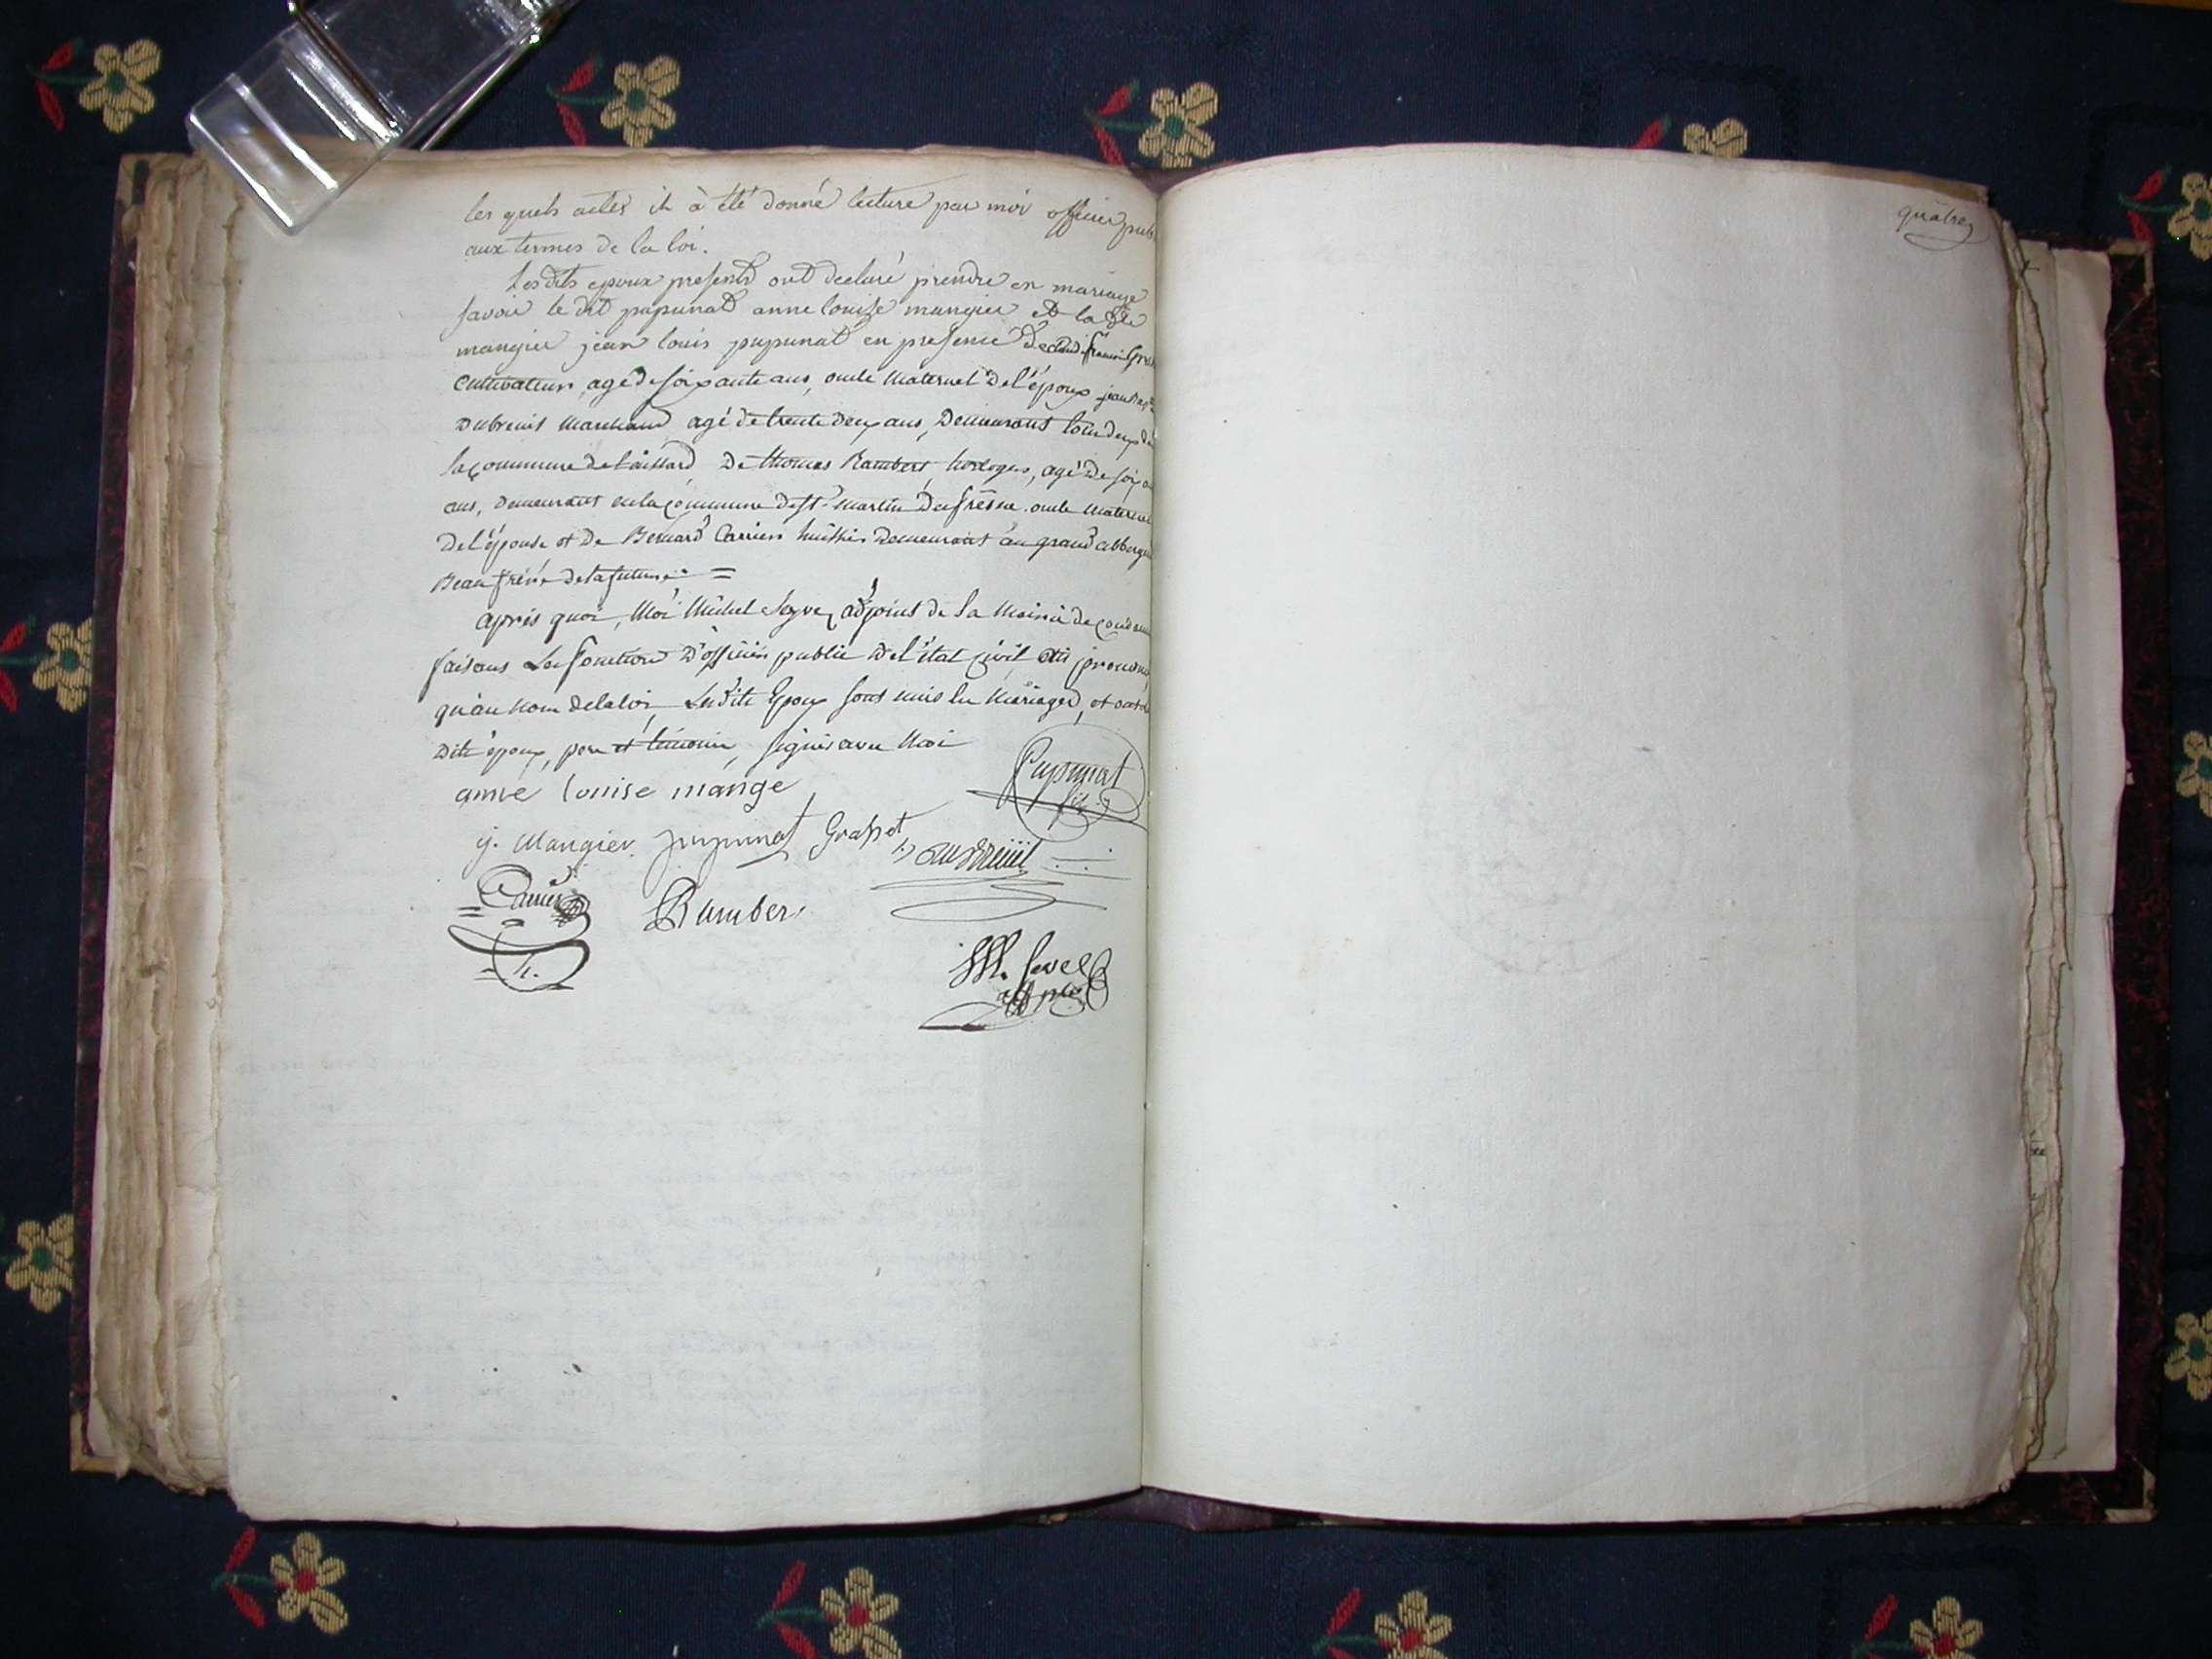 les quels actes il à été donné lecture par moi officier pub
aux termes de la loi.
Les dits epoux presents ont declaré prendre en mariage
savoir le dit pupunat anne louise mangier et la dte
mangier jean louis pupunat en presence de claude françois Gra
cultivateur, agé de soixante ans, oncle Maternel de l'époux jean
Dubreuil Marchand agé de trente deux ans, Demeurants tous deux de
la commune de De thomas Rambert, horloger, agé de soix
ans, demeurant en la commune de st. martin du frêsne. oncle Maternel
De l'épouse et de Bernard Carrier huissier Demeurant au grand abberge
Beau frère de la future. =
après quoi, Moi Michel adjoint de la Mairie de
faisant Les fonctions D'officier public De l'état civil, ai prononcé
qu'au nom de la loi, Les dits Epoux sont unis en Mariages, et ont
Dits époux, pere et témoins, signés avec Moi
anne louise mange
Pupunat
fils
j. Mangier. pupunat Grasset
Dubreuil
Carrier
h.
Rambert
M.
adjoint
quatre